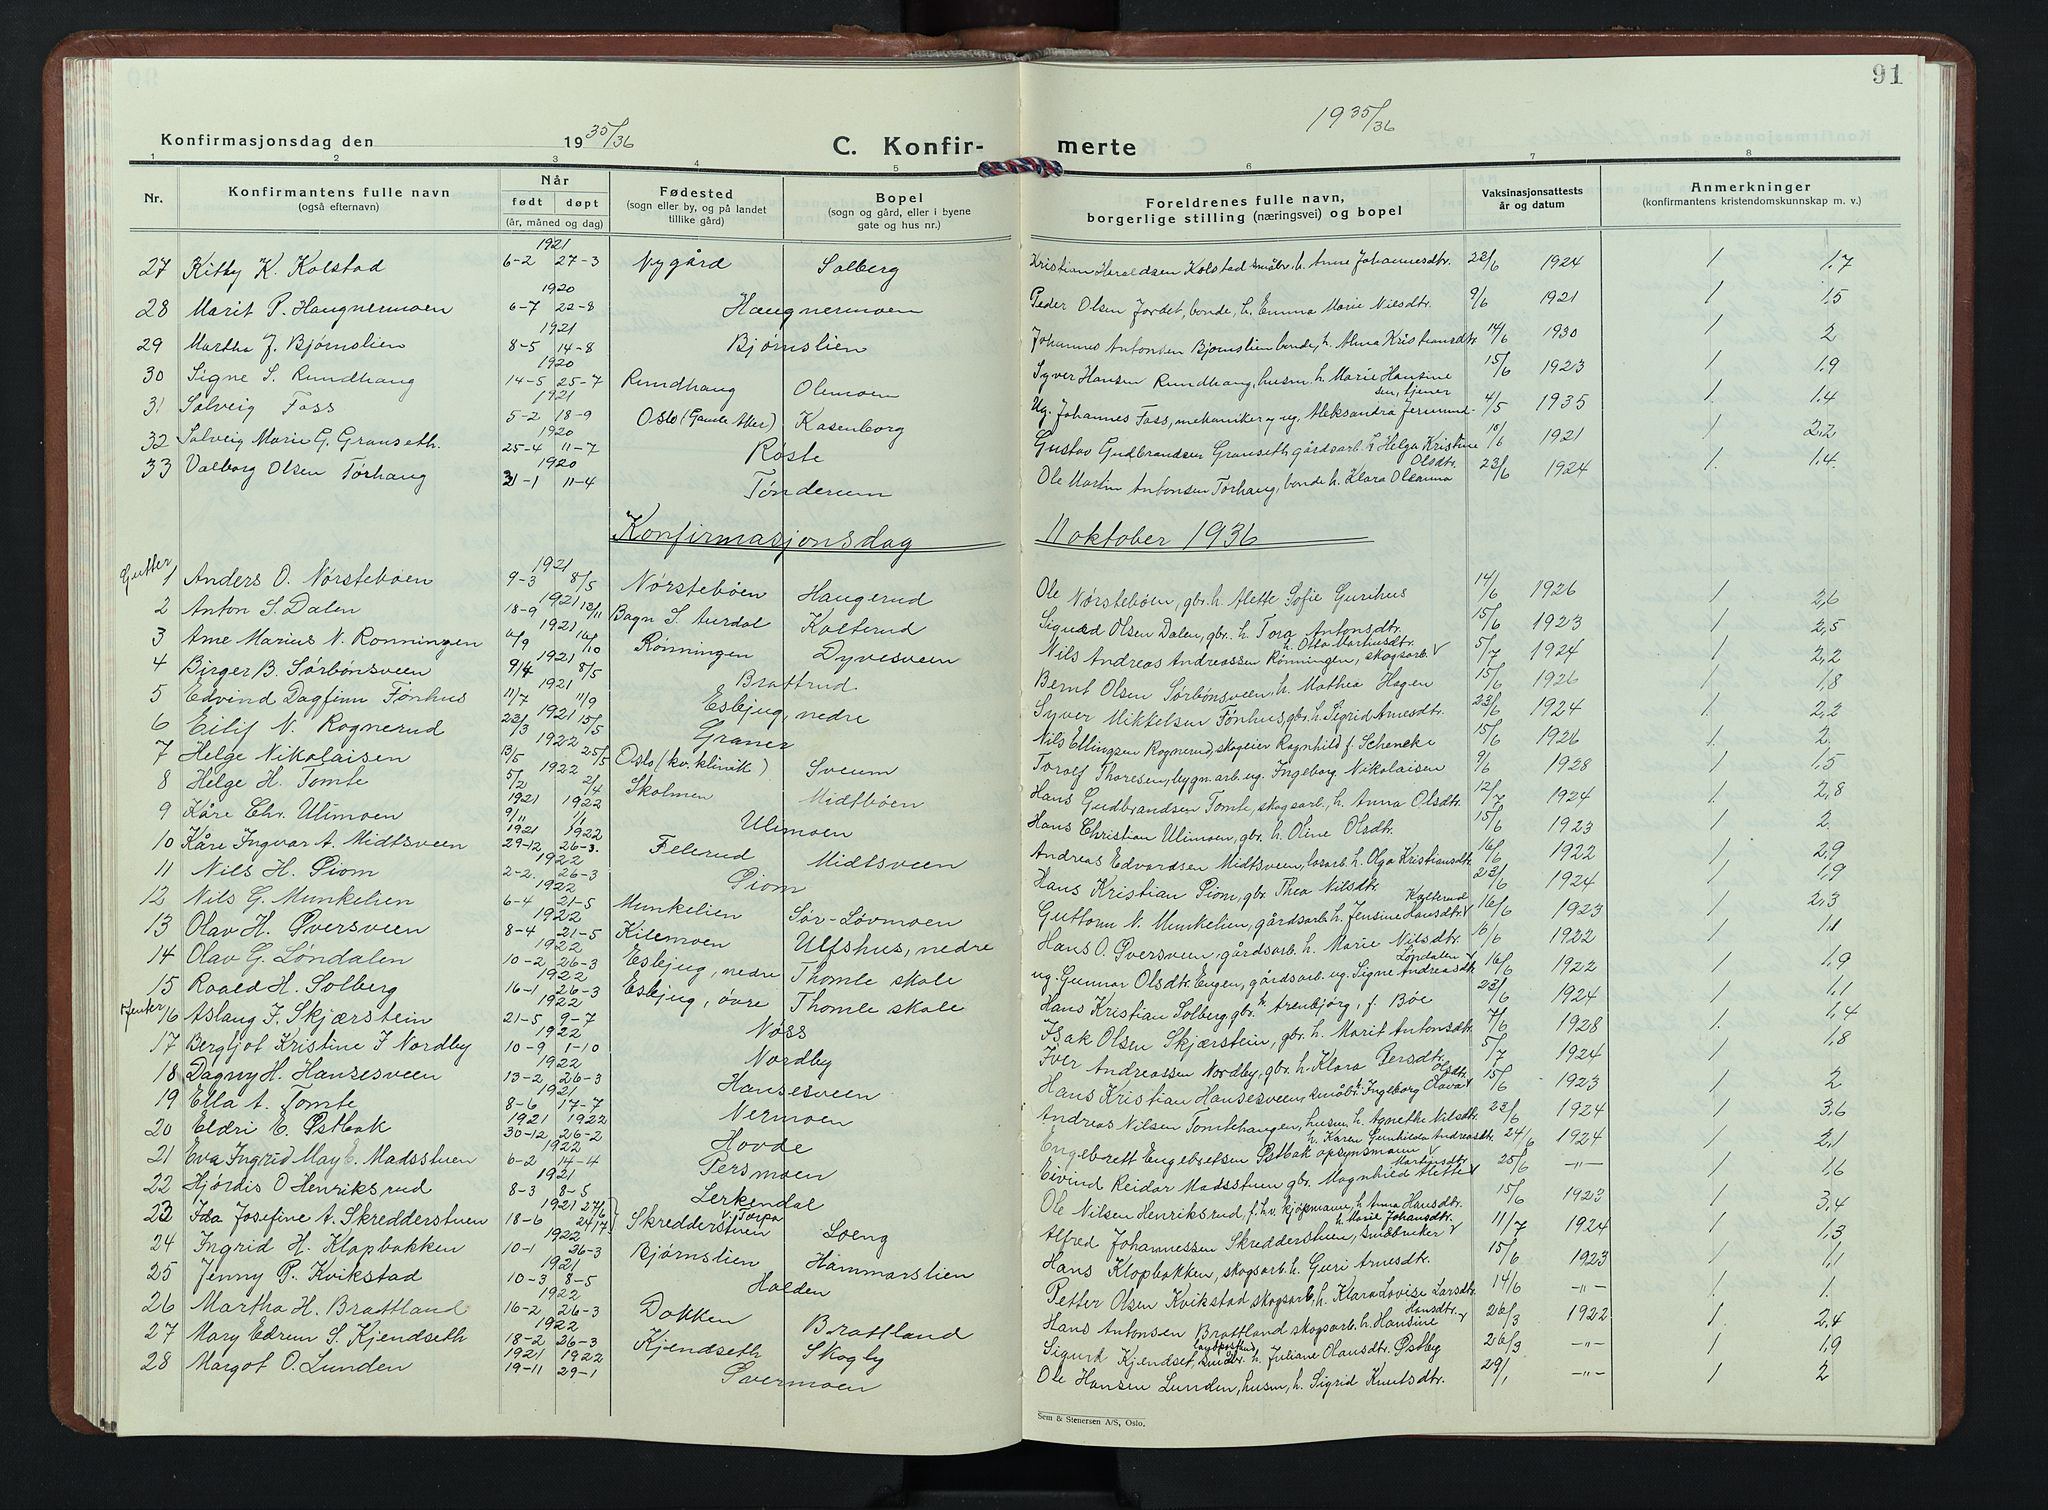 91
1935/36
Konfirmasjonsdag den 1935/36 C. Konfir- merte
1 2 3 4 5 6 7 8
Nr. Konfirmantens fulle navn (også efternavn) Når født døpt (år, måned og dag) Fødested (sogn eller by, og på landet tillike gård) Bopel (sogn og gård, eller i byene gate og hus nr.) Foreldrenes fulle navn, borgerlige stilling (næringsvei) og bopel Vaksinasjonsattests år og datum Anmerkninger (konfirmantens kristendomskunnskap m. v.)
27 Kitty K. Kolstad 1921 6-2 27-3 Nygård Solberg Kristian Haraldsen Kolstad småbr. h. Anne Johannesdtr. 22/6 1924 1 1.7
28 Marit P. Haugnermoen 1920 6-7 22-8 Haugnermoen Peder Olsen Jordet, bonde, h. Emma Marie Nilsdtr. 9/6 1921 1 1.5
29 Martha J. Bjørnslien 1921 8-5 14-8 Bjørnslien Johannes Antonsen Bjørnslien bonde, h. Alma Kristiansdtr. 14/6 1930 1 2
30 Signe S. Rundhaug 1920 14-5 25-7 Rundhaug Olemoen Syver Hansen Rundhaug, husm. h. Marie Hansine 15/6 1923 1 1.9
31 Solveig Foss 1921 5-2 18-9 Oslo (Gamle Aker) Kasenborg Ug. Johannes Foss, mekaniker og ug. Aleksandra Jermundsen, tjener 4/5 1935 1 1.4
32 Solveig Marie G. Granseth 1920 25-4 11-7 Røste Gustav Gudbrandsen Granseth, gårdsarb. h. Helga Kristine Olsdtr. 18/6 1921 1 2,2
33 Valborg Olsen Tørhaug 1920 31-1 11-4 Tønderum Ole Martin Antonsen Tørhaug, bonde h. Klara Olsanna 23/6 1924 1. 1.4.
Konfirmasjonsdag 11 oktober 1936
Gutter
1 Anders O. Nørstebøen 1921 9-3 8/5 Nørstebøen Haugerud Ole Nørstebøen, gbr. h. Alette Sofie Gurihus 14/6 1926 1 2,6
2 Anton S. Dalen 1921 18-9 13/11 Bagn S. Aurdal Kolterud Sigurd Olsen Dalen, gbr. h. Tora Antonsdtr. 15/6 1923 1 2,5
3 Arne Marius N. Rønningen 1921 4/9 16/10 Rønningen Dyvesveen Nils Andreas Andreassen Rønningen, skogsarb. h. Olta Marthusdtr. 5/7 1924 1 2,2
4 Birger B. Sørbønsveen 1921 9/4 8/5 Brattrud Bernt Olsen Sørbønsveen, h. Mathea Hagen 15/6 1926 1 1,8
5 Edvind Dagfinn Fønhus 1921 11/7 11/9 Esbjug, nedre Syver Mikkelsen Fønhus, gbr. h. Sigrid Arnesdtr. 23/6 1924 1 2,2
6 Eilif N. Rognerud 1921 22/3 15/5 Graner Nils Ellingsen Rognerud, skogeier Ragnhild f. Schencke 15/6 1926 1. 2.
7 Helge Nikolaisen 1922 13/5 25/5 Oslo (kv. klinik) Sveum Torolf Thoresen, bygn.arb. ug. Ingeborg Nikolaisen 9/6 1928 1 1.5
8 Helge H. Tomte 1922 5/2 2/4 Skolmen Midtbøen Hans Gudbrandsen Tomte, skogsarb. h. Anna Olsdtr. 12/7 1924 1 2,8
9 Kåre Chr. Ulimoen 1921 1922 9/11 1/1 Ulimoen Hans Christian Ulimoen, gbr. h. Oline Olsdtr. 15/6 1923 1 2
10 Kåre Ingvar A. Midtsveen 1921 1922 29-12 26-3. Felerud Midtsveen Andreas Edvardsen Midtsveen, løsarb. h. Olga Kristiansdtr. 16/6 1922 1 2,9
11 Nils H. Piom 1922 2-2. 26-3 Piom Hans Kristian Piom, gbr. Thea Nilsdtr. 23/6 1924 1 1,9
12 Nils G. Munkelien 1922 6-4 21-5 Munkelien Sør-Løvmoen Guttorm N. Munkelien, gårdsarb. h. Jensine Hansdtr. Kolterud 16/6 1923 1 2,3
13 Olav H. Øversveen 1922 8-4 21-5 Kilemoen Ulfshus, nedre Hans O. Øversveen, gårdsarb. h. Marie Nilsdtr. 16/6 1922 1 1,1
14 Olav G. Løndalen 1922 10-2 26-3 Esbjug, nedre Thomle skole ug. Gunnar Olsdtr. Engen, gårdsarb. ug. Signe Andreasdtr. Løndalen 16/6 1922 1 1,9
15 Roald H. Solberg 1922 16-1 26-3 Esbjug, övre Thomle skole Hans Kristian Solberg, gbr. h. Arenbjørg, f. Bøe 23/6 1924 1 1,1
Jenter
16 Aslaug I. Skjærstein 1922 21-5 9-7 Noss Isak Olsen Skjærstein, gbr. h. Marit Antonsdtr. 7/6 1928 1. 1,4
17 Bergljot Kristine I Nordby 1922 10-9 1-10 Nordby Iver Andreassen Nordby, gbr. h. Klara Persdtr. 5/7 1924 1 1.8
18 Dagny H. Hansesveen 1922 13-2 26-3 Hansesveen Hans Kristian Hansesveen, småbr. h. Ingeborg Olava Olsdtr. 15/6 1923 1 2
19 Ella A. Tomte 1921 8-6 17-7 Nermoen Andreas Nilsen Tomtehaugen, husm. h. Agnethe Nilsdtr. 22/6 1924 1 3,6
20 Eldri E. Østbak 1921 1922 30-12 26-2 Hovde Engebrett Engebretsen Østbak opsynsmann h. Karen Gunhilda Andreasdtr. 24/6 1924 1 2,1
21 Eva Ingrid May E. Madsstuen 1922 6-2 14-4 Persmoen Eivind Reidar Madsstuen gbr. Magnhild Alette Martinsdtr. 25/6 -"- 1 1.6
22 Hjørdis O Henriksrud 1921 8-3 8-5 Lerkendal Ole Nilsen Henriksrud, f.h.v. kjøpmann, h. Anna Hansdtr. 15/6 1923 1 3,4
23 Ida Josefine A. Skredderstuen 1921 18-6 27/6 24/7 Skredderstuen V. Torpa Loeng Alfred Johannessen Skredderstuen, småbruker h. Marie Johansdtr. 11/7 1924 1 1.3
24 Ingrid H. Klopbakken 1922 10-1 26-3 Bjørnslien Hammarslien Hans Klopbakken, skogsarb. h. Guri Arnesdtr. 15/6 1923 1 1,1
25 Jenny P. Kvikstad 1921 10-3 8-5 Halden Petter Olsen Kvikstad skogsarb, h. Klara Lovise Larsdtr. 14/6 -"- 1. 1.
26 Martha H. Brattland 1922 16-2 26-3 Dokken Brattland Hans Antonsen Brattland skogsarb. h. Hansine Hansdtr. 26/3 1922 1. 2,4
27 Mary Edrun S. Kjendseth 1922 18-2 26-3 Kjendseth Skogby Sigurd Kjendset, landpostbud, småbr. h. Juliane Olausdtr. Østby 26/3 -"- 1 1,9
28 Margot O. Lunden 1921 1922 19-11 29-1 Øvermoen Ole Hansen Lunden, husm, h. Sigrid Knutsdtr. 29/1 -"- 1 2
Sem & Stenersen A/S, Oslo.